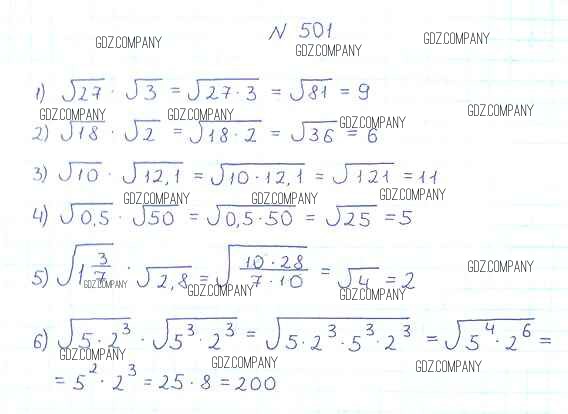 N 501
GDZ.COMPANY GDZ.COMPANY GDZ.COMPANY
1) √27 · √3 = √27 · 3 = √81 = 9
GDZ.COMPANY GDZ.COMPANY GDZ.COMPANY GDZ.COMPANY
2) √18 · √2 = √18 · 2 = √36 = 6
3) √10 · √12,1 = √10 · 12,1 = √121 = 11
GDZ.COMPANY GDZ.COMPANY GDZ.COMPANY
4) √0,5 · √50 = √0,5·50 = √25 = 5
5) √1 3/7 · √2,8 = √(10 · 28)/(7 · 10) = √4 = 2
GDZ.COMPANY GDZ.COMPANY GDZ.COMPANY GDZ.COMPANY
6) √5 · 2³ · √5³ · 2³ = √5 · 2³ · 5³ · 2³ = √5⁴ · 2⁶ =
GDZ.COMPANY GDZ.COMPANY GDZ.COMPANY
= 5² · 2³ = 25 · 8 = 200